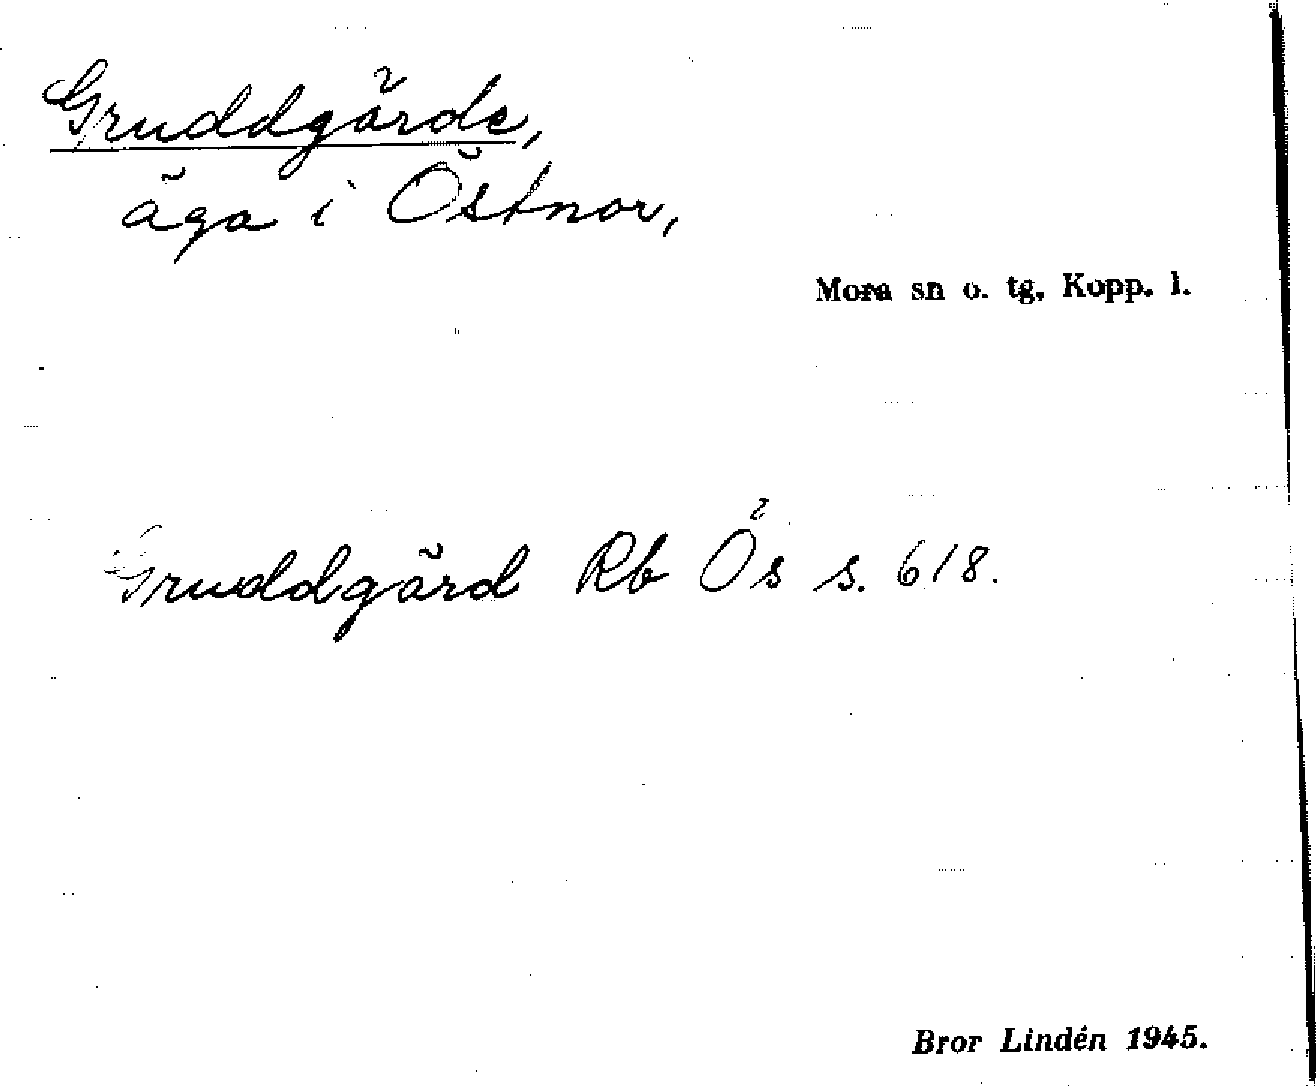 Gruddgärde,
äga i Östnor,
Mora sn o. tg, Kopp. l.
Gruddgärd Rb Ös s. 618.
Bror Lindén 1945.